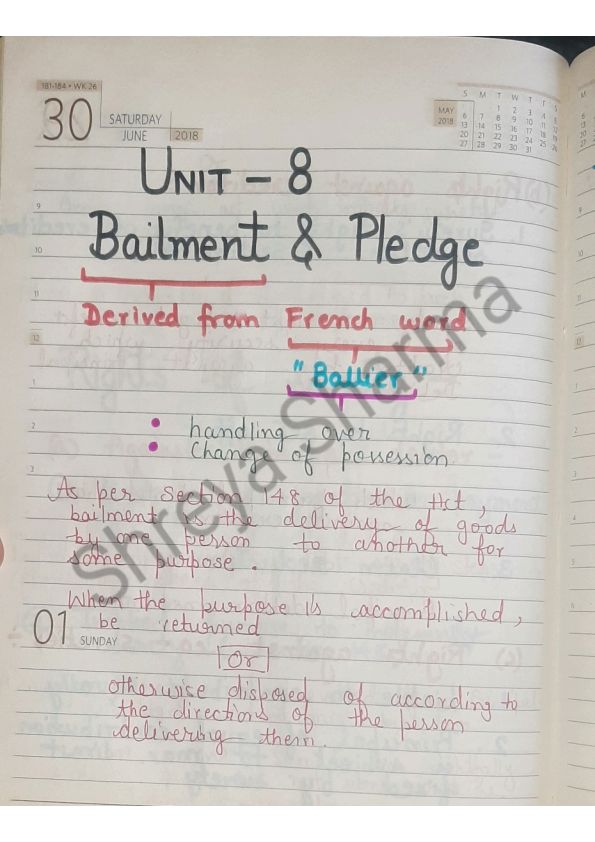 181-184 • WK 26
30
SATURDAY
JUNE 2018
MAY 2018
S M T W T F S
1 2 3 4 5
6 7 8 9 10 11 12
13 14 15 16 17 18 19
20 21 22 23 24 25 26
27 28 29 30 31
UNIT - 8
Bailment & Pledge
Derived from French word
"Ballier"
• handling over
• Change of possession
As per section 148 of the Act,
bailment is the delivery of goods
by one person to another for
some purpose.
When the purpose is accomplished,
be returned
Or
otherwise disposed of according to
the directions of the person
delivering them.
01
SUNDAY
9
10
11
12
1
2
3
Shreya Sharma